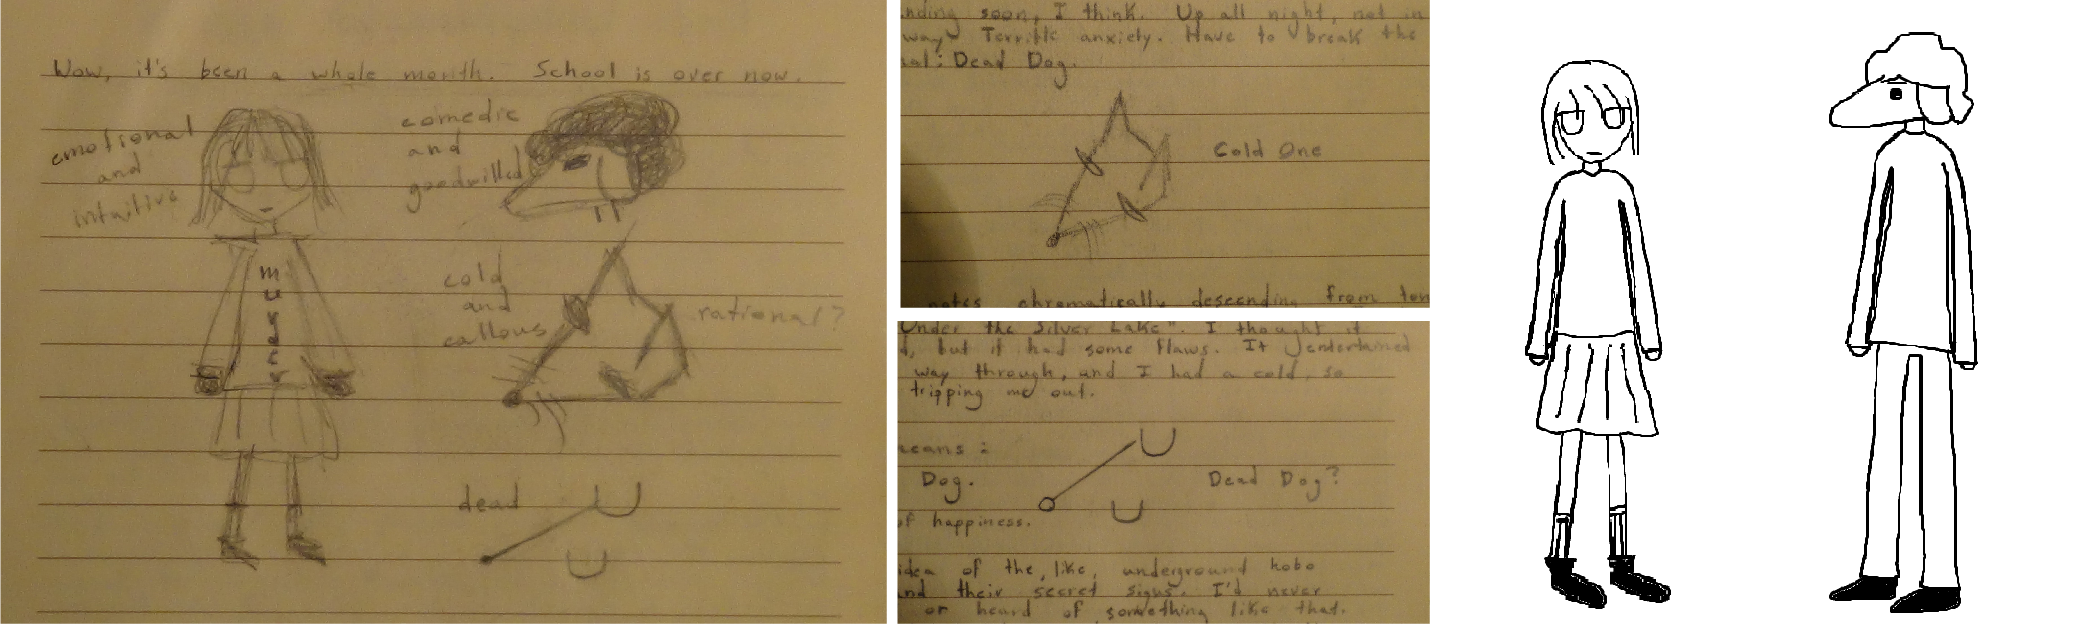 Wow, it's been a whole month. School is over now.
emotional
and
intuitive
comedic
and
goodwilled
murder
cold
and
callous
rational?
dead
nding soon, I think. Up all night, not in
way. Terrific anxiety. Have to break the
al: Dead Dog.
Cold One
notes chromatically descending from ton
Under the Silver Lake". I thought it
d, but it had some flaws. It entertained
way through, and I had a cold, so
tripping me out.
eans:
Dog.
Dead Dog?
of happiness.
idea of the, like, underground hobo
nd their secret signs. I'd never
or heard of something like that.